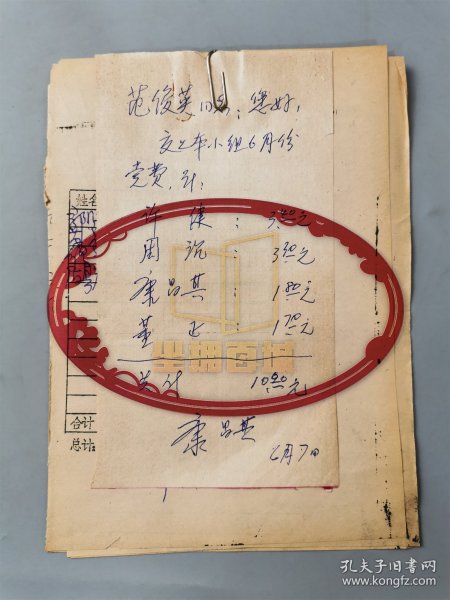 范俊英同志:您好,
交上本小组6月份
党费,计:
许健:3.80元
周説:3.80元
康昌其:1.80元
董正:1.70元
共计 10.80元
康昌其
6月7日
姓名
合计
总计
坐拥百城
孔夫子旧书网
www.kongfz.com